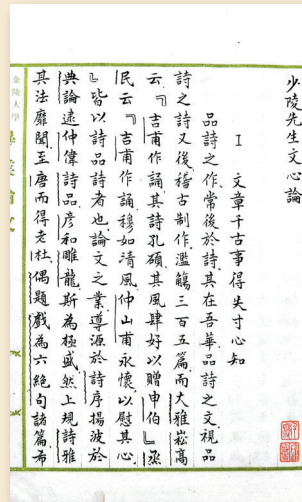 少陵先生文心論
I 文章千古事得失寸心知
品詩之作，常後於詩。其在吾華，品詩之文，視品
詩之詩又後。稽古制作，濫觴三百五篇。而大雅崧高
云：『吉甫作誦，其詩孔碩，其風肆好，以贈申伯。』烝
民云：『吉甫作誦，穆如清風。仲山甫永懷，以慰其心。
』皆以詩品詩者也。論文之業，導源於詩序，揚波於
典論。逮仲偉詩品，彥和雕龍，斯為極盛。然上規詩雅，
其法靡聞。至唐而得老杜，偶題、戲為六絕句諸篇，希
金陵大學